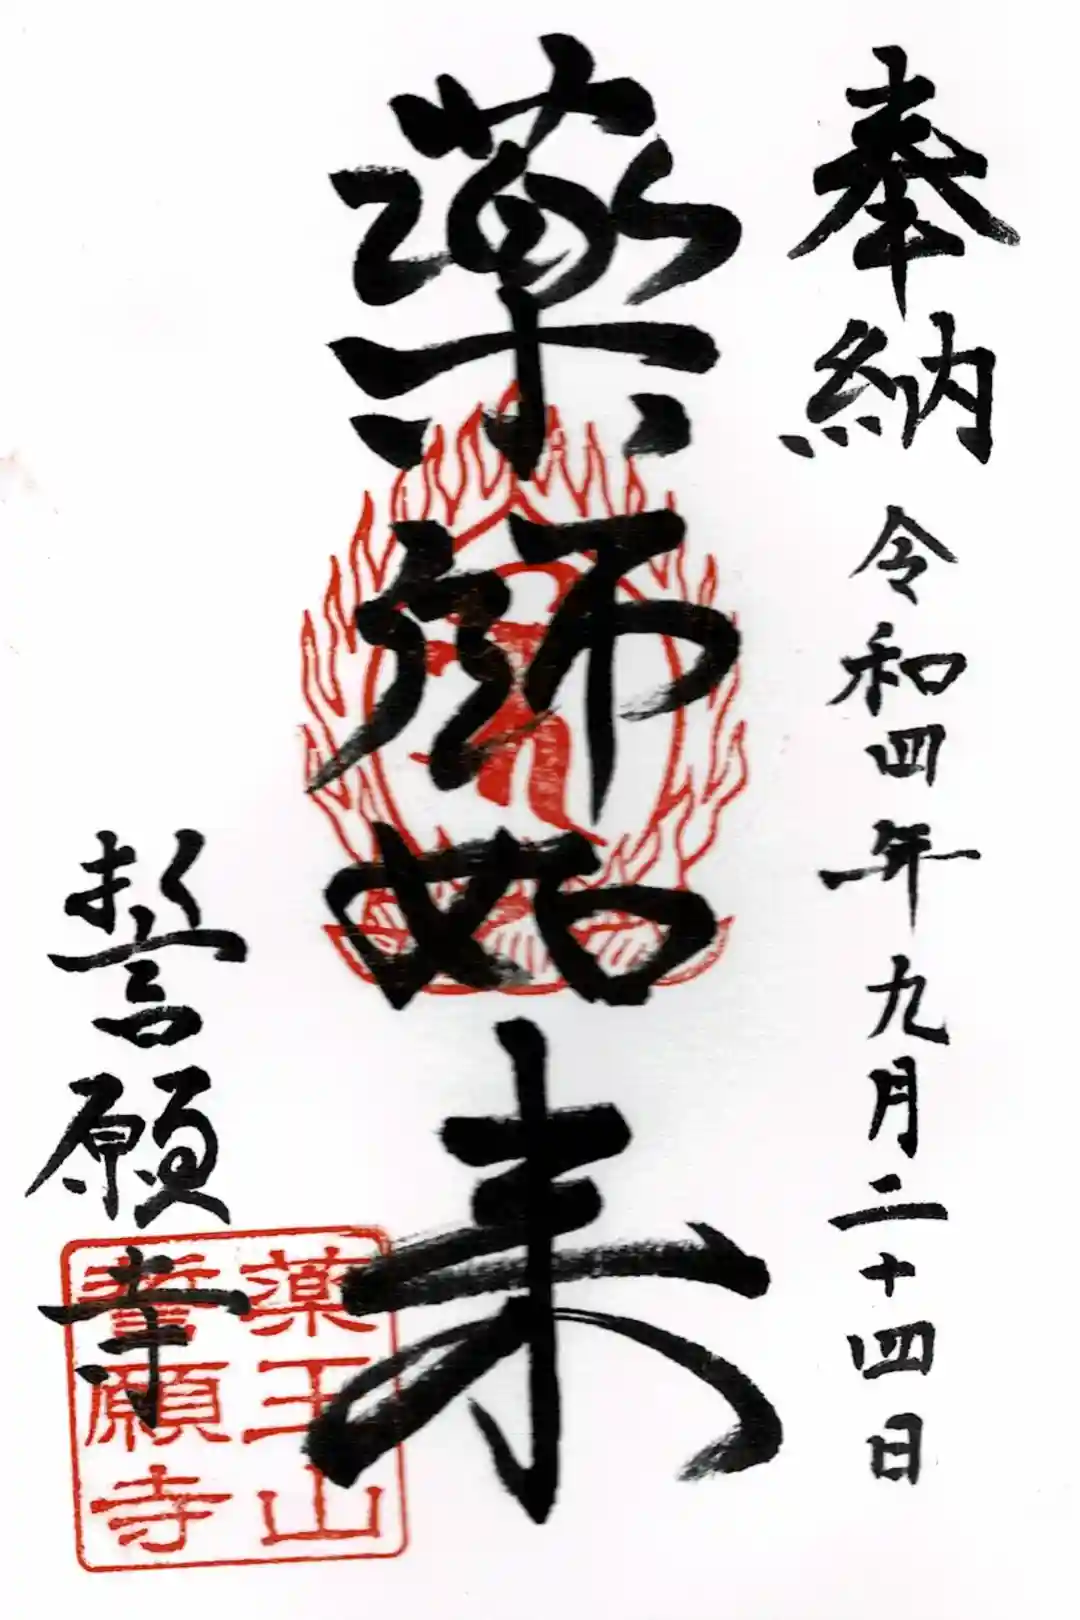 奉納 令和四年九月二十四日
薬師如来
誓願寺
薬王山
誓願寺